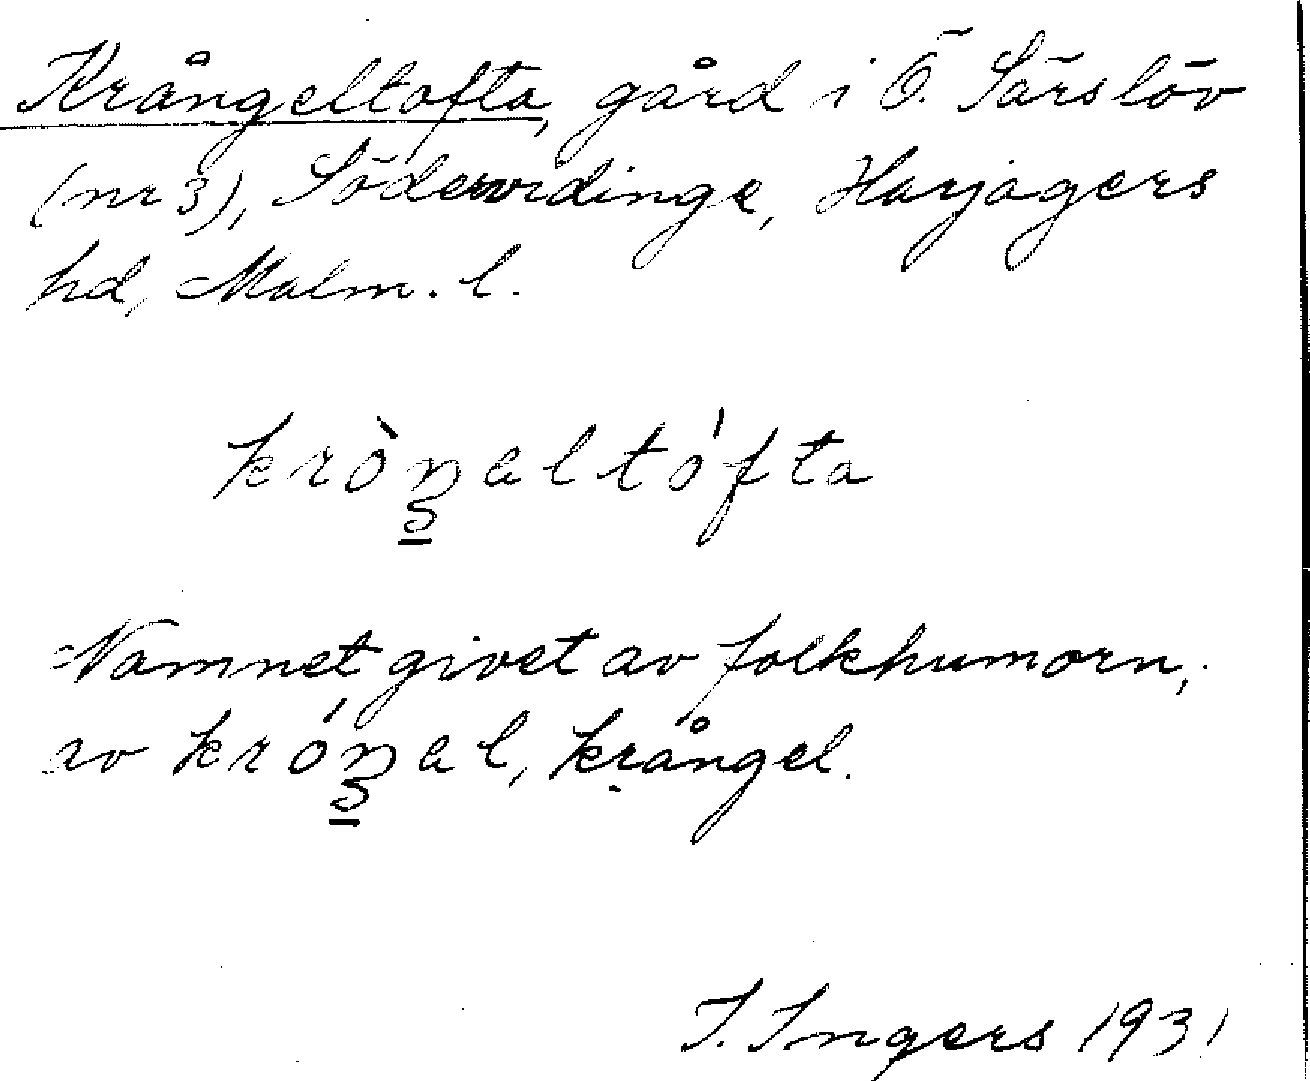 Krångeltofta, gård i Ö. Särslöv
(nr 3), Södervidinge, Harjagers
hd, Malm. l.
kròŋaltófta
Namnet givet av folkhumorn,
av króŋal, krångel.
I. Ingers 1931